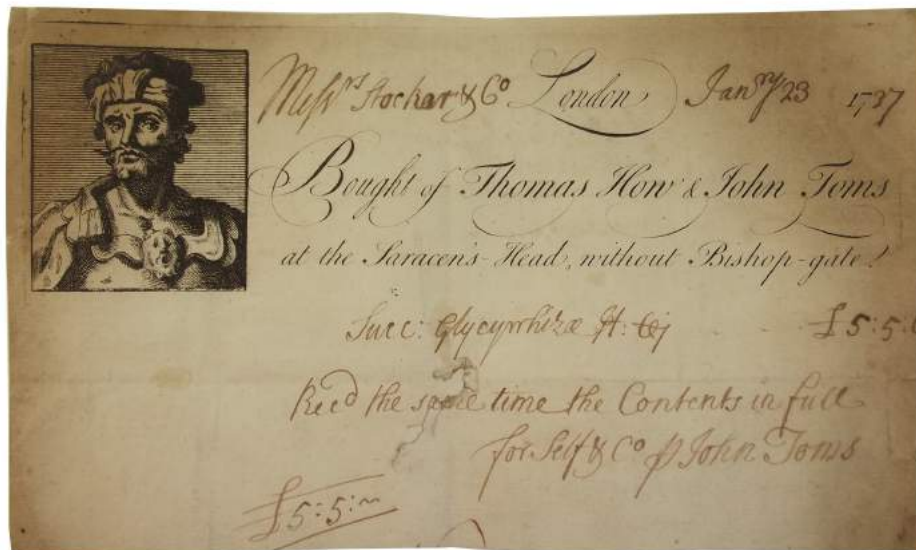 Messrs Stockar & Co London Janry 23 1737
Bought of Thomas How & John Toms
at the Saracen's-Head, without Bishop-gate.
Succ: Glycyrrhizæ It: Cj £5:5:
Recd the same time the Contents in full
for Self & Co p John Toms
£5:5:~